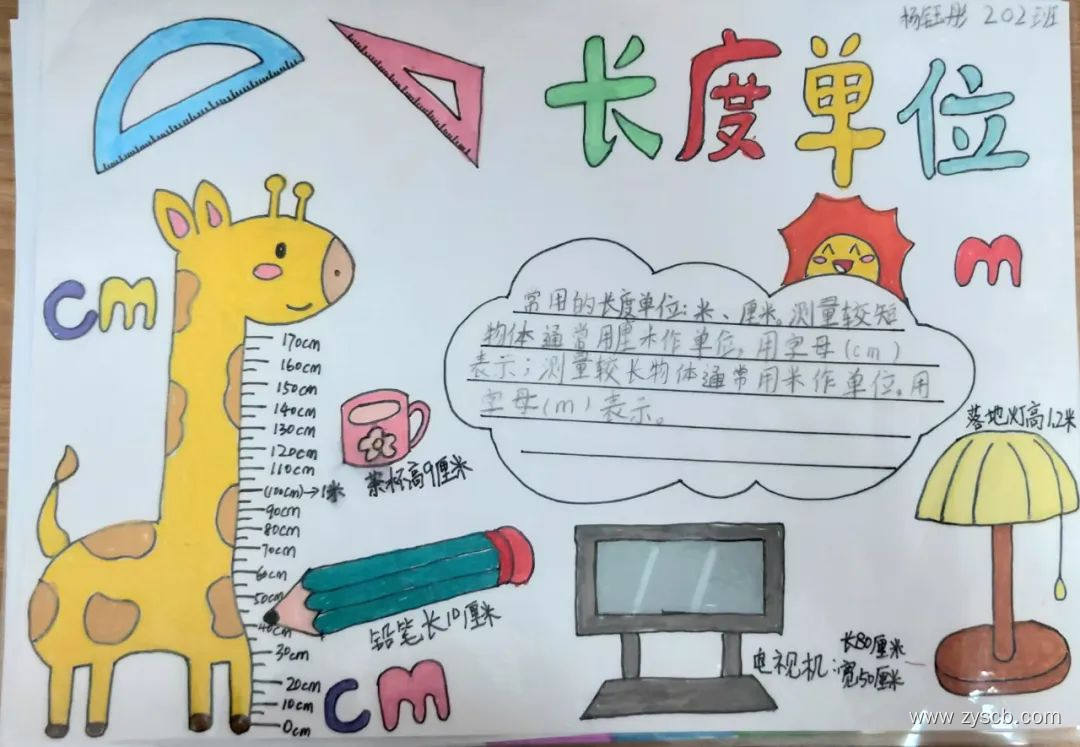 杨钰彤 202班
长度单位
cm
m
常用的长度单位:米、厘米。测量较短
物体通常用厘米作单位。用字母(cm)
表示;测量较长物体通常用米作单位。用
字母(m)表示。
170cm
160cm
150cm
140cm
130cm
120cm
110cm
(100cm)→1米
90cm
80cm
70cm
60cm
50cm
40cm
30cm
20cm
10cm
0cm
茶杯高9厘米
铅笔长10厘米
cm
落地灯高1.2米
电视机:长80厘米
宽50厘米
www.zyscb.com